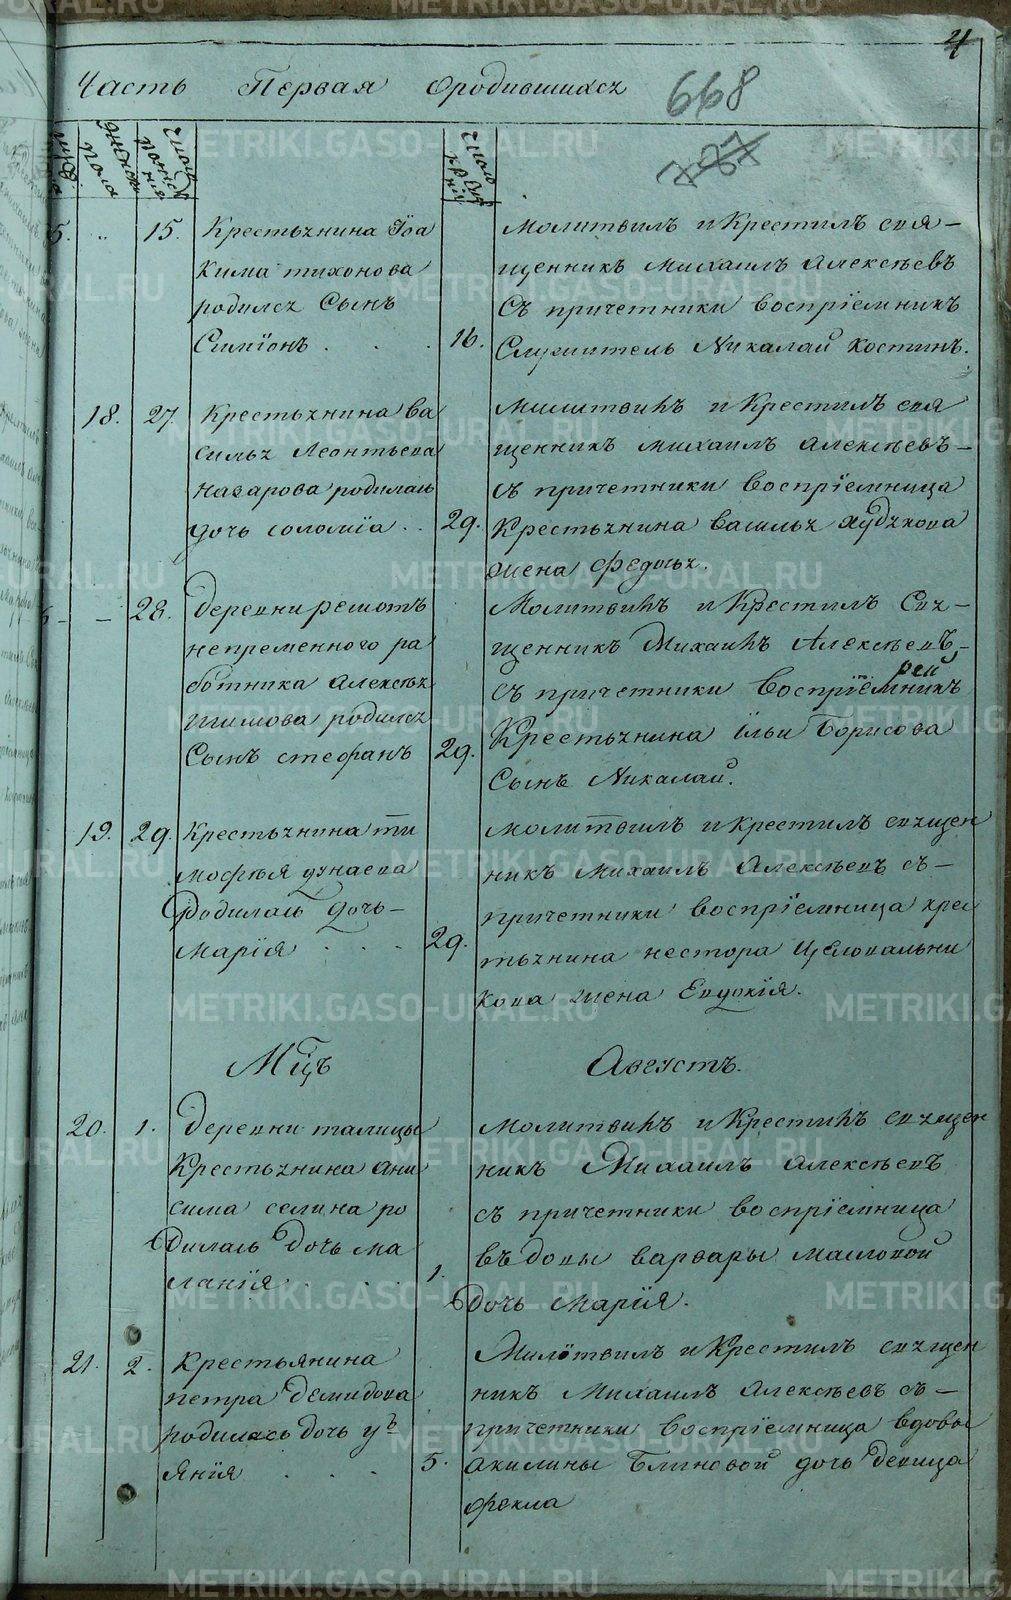 4
Часть Первая Ородившихсѧ
668
737
женска
пола
Число
рожде
нія
Число
креще
нія
5. „ 15. Крестьѧнина Їоа
кима тихонова
родилсѧ Сынъ
Симїонъ . . .
16.
молитвилъ и Крестилъ свя-
щенникъ михаилъ алексѣевъ
Съ причетники воспрїемникъ
Служитель Николай Костинъ.
18. 27. Крестьѧнина ва
сильѧ Леонтьева
назарова родилась
дочь соломїа . .
29.
Молитвилъ и Крестилъ свя
щенникъ михаилъ алексѣевъ-
съ причетники воспрїемница
Крестьѧнина васильѧ худѧкова
жена федосьѧ.
28. деревни решотъ
непременного ра
ботника алексѣѧ
шимова родилсѧ
Сынъ стефанъ
29.
Молитвилъ и Крестилъ Свѧ-
щенникъ Михаилъ Алексѣевъ-
съ причетники воспрїемникъ
Крестьѧнина їльи Борисова
Сынъ Николай.
19. 29. Крестьѧнина ти
мофѣя дунаева
родилась дочь-
марїя . . .
29.
молитвилъ и крестилъ свѧщен
никъ Михаилъ Алексѣевъ съ-
причетники воспрїемница крес
тьѧнина нестора Целовальни
кова жена Евдокія.
Мцъ Августъ.
20. 1. деревни талицы
Крестьѧнина они
сима селина ро
дилась дочь ма
ланїя . . .
1.
молитвилъ и Крестилъ свѧщен
никъ Михаилъ алексѣевъ
съ причетники воспрїемница
въдовы варвары масловой
дочь марїя.
21. 2. крестьянина
петра демидова
родилась дочь уль
янїя . . .
5.
Милотвилъ и Крестилъ свѧщен
никъ Михаилъ алексѣевъ съ-
причетники воспрїемница вдовы
акилины Блиновой дочь девица
фекла
METRIKI.GASO-URAL.RU